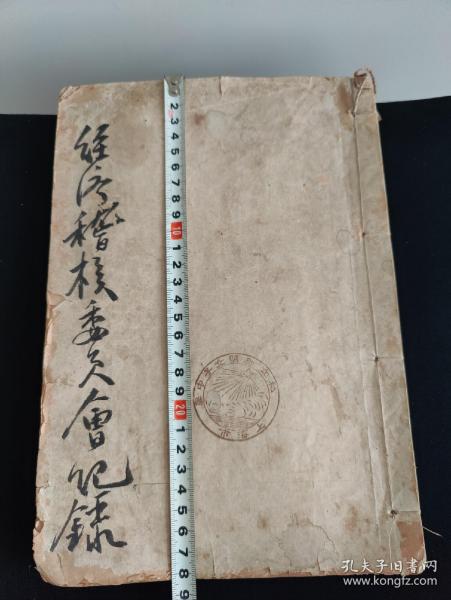 经济稽核委员會记録
2 3 4 5 6 7 8 9 10 1 2 3 4 5 6 7 8 9 20 1 2 3 4 5 6 7 8 9
孔夫子旧书网
www.kongfz.com